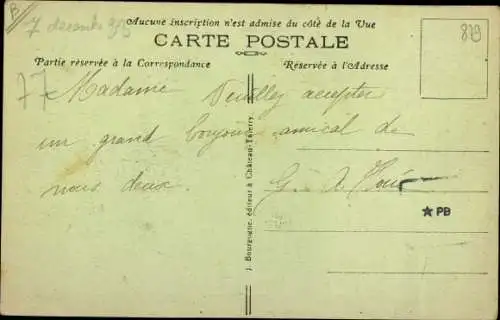 B
7
Aucune inscription n'est admise du côté de la Vue
CARTE POSTALE
Partie réservée à la Correspondance
Réservée à l'Adresse
879
77
Madame Veuillez accepter
un grand bonjour amical de
nous deux.
G. A.
PB
J. Bourgogne, éditeur à Château-Thierry.